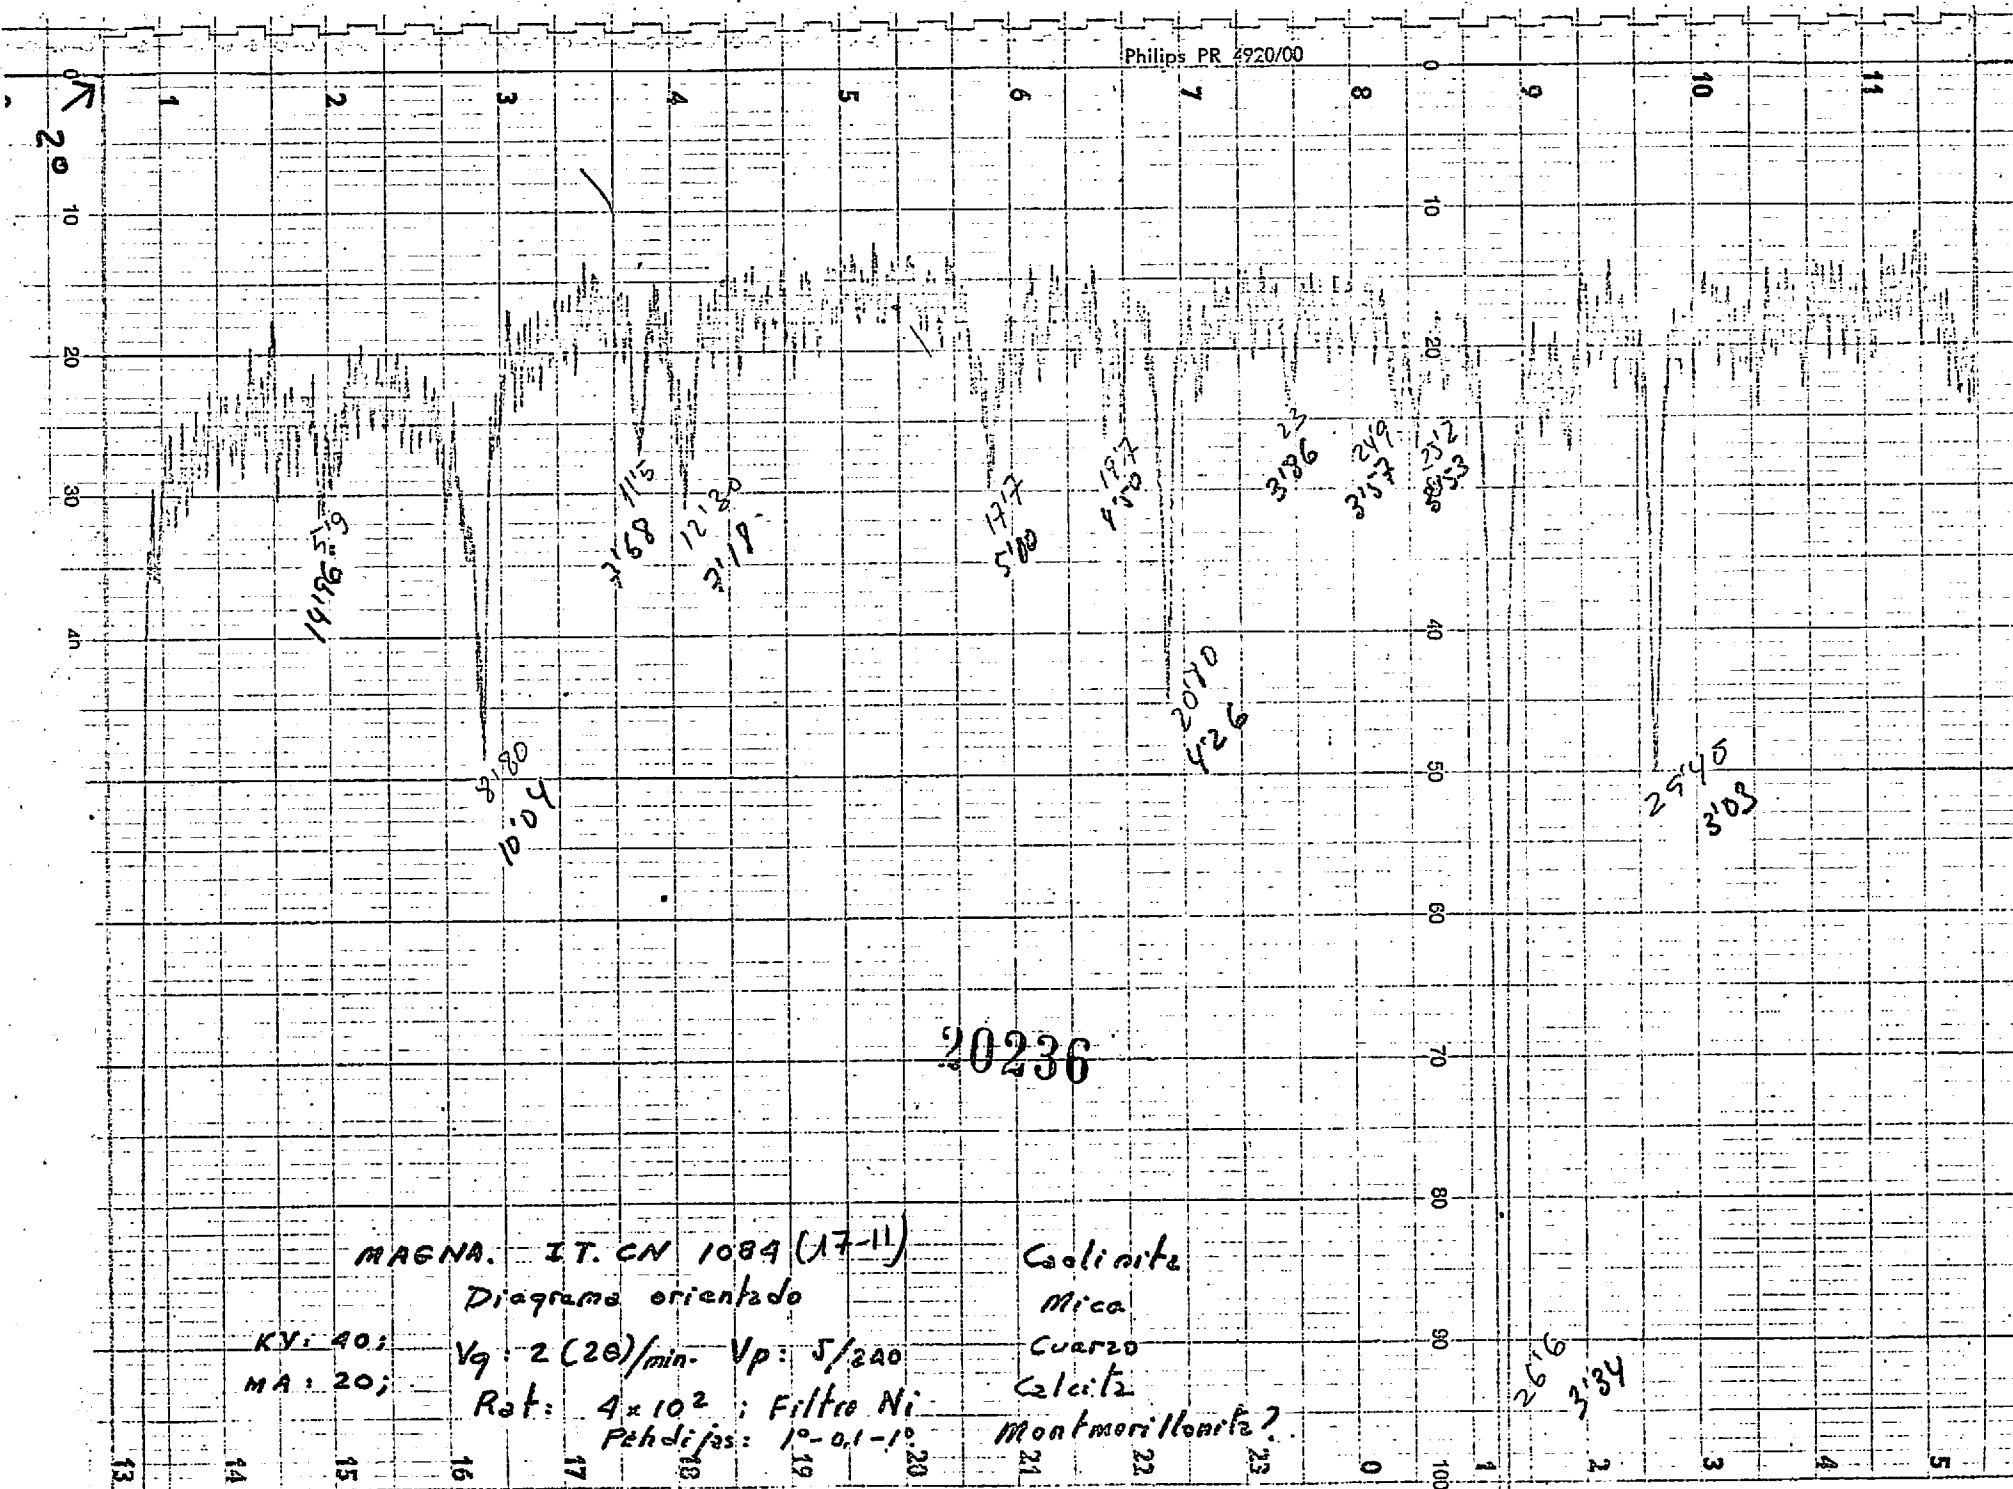 Philips PR 4920/00
0 1 2 3 4 5 6 7 8 0 9 10 11
2θ
10 10
20 20
30
40 40
50
60
70
80
90
100
5'9
14'96
8'80
10'04
11'5
7'68
12'30
7'18
17'7
5'00
19'7
4'50
20'80
4'26
23
3'86
24'9
3'57
25'2
3'53
29'40
3'03
26'6
3'34
20236
MAGNA. IT. CN 1084 (17-11)
Diagrama orientado
KV: 40;
Vg: 2 (2θ)/min. Vp: 5/200
MA: 20;
Rat: 4x10²; Filtro Ni
Rehdijas: 1º-0,1-1º
Caolinita
Mica
Cuarzo
Calcita
Montmorillonita?
13 14 15 16 17 18 19 20 21 22 23 0 1 2 3 4 5